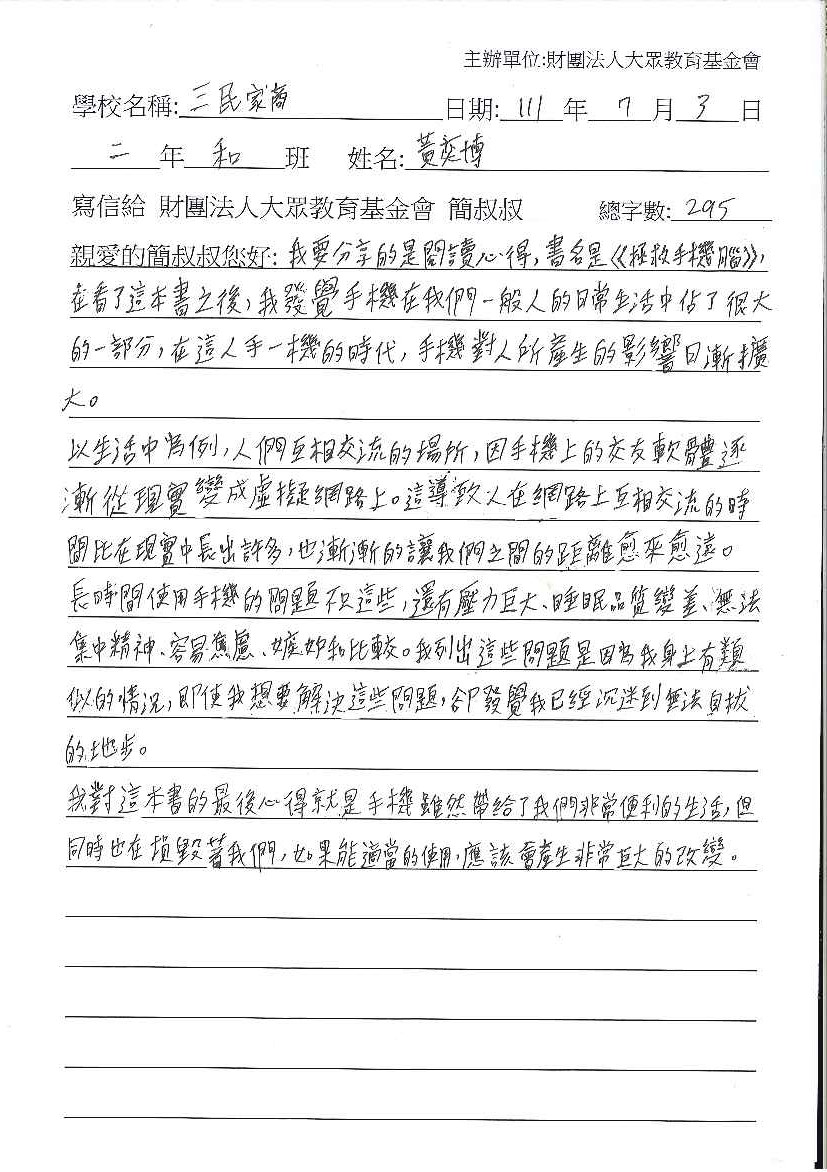 主辦單位:財團法人大眾教育基金會
學校名稱: 三民家商 日期: 111 年 7 月 3 日
二 年 和 班 姓名: 黃奕博
寫信給 財團法人大眾教育基金會 簡叔叔 總字數: 295
親愛的簡叔叔您好: 我要分享的是閱讀心得，書名是《拯救手機腦》，
在看了這本書之後，我發覺手機在我們一般人的日常生活中佔了很大
的一部分，在這人手一機的時代，手機對人所產生的影響日漸擴
大。
以生活中為例，人們互相交流的場所，因手機上的交友軟體逐
漸從現實變成虛擬網路上。這導致人在網路上互相交流的時
間比在現實中長出許多，也漸漸的讓我們之間的距離愈來愈遠。
長時間使用手機的問題不只這些，還有壓力巨大、睡眠品質變差、無法
集中精神、容易焦慮、嫉妒和比較。我列出這些問題是因為我身上有類
似的情況，即使我想要解決這些問題，卻發覺我已經沉迷到無法自拔
的地步。
我對這本書的最後心得就是手機雖然帶給了我們非常便利的生活，但
同時也在損毀著我們，如果能適當的使用，應該會產生非常巨大的改變。